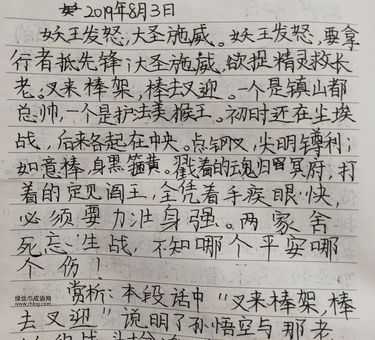 2019年8月3日
妖王发怒,大圣施威。妖王发怒,要拿
行者抵先锋;大圣施威,欲捉精灵救长
老。叉来棒架,棒去叉迎。一个是镇山都
总帅,一个是护法美猴王。初时还在尘埃
战,后来各起在中央。点钢叉,尖明利;
如意棒,身黑箍黄。戳着的魂归冥府,打
着的定见阎王。全凭着手疾眼快,
必须要力壮身强。两家舍
死忘生战,不知哪个平安哪
个伤!
赏析:本段话中“叉来棒架,棒
去叉迎”说明了孙悟空与那老